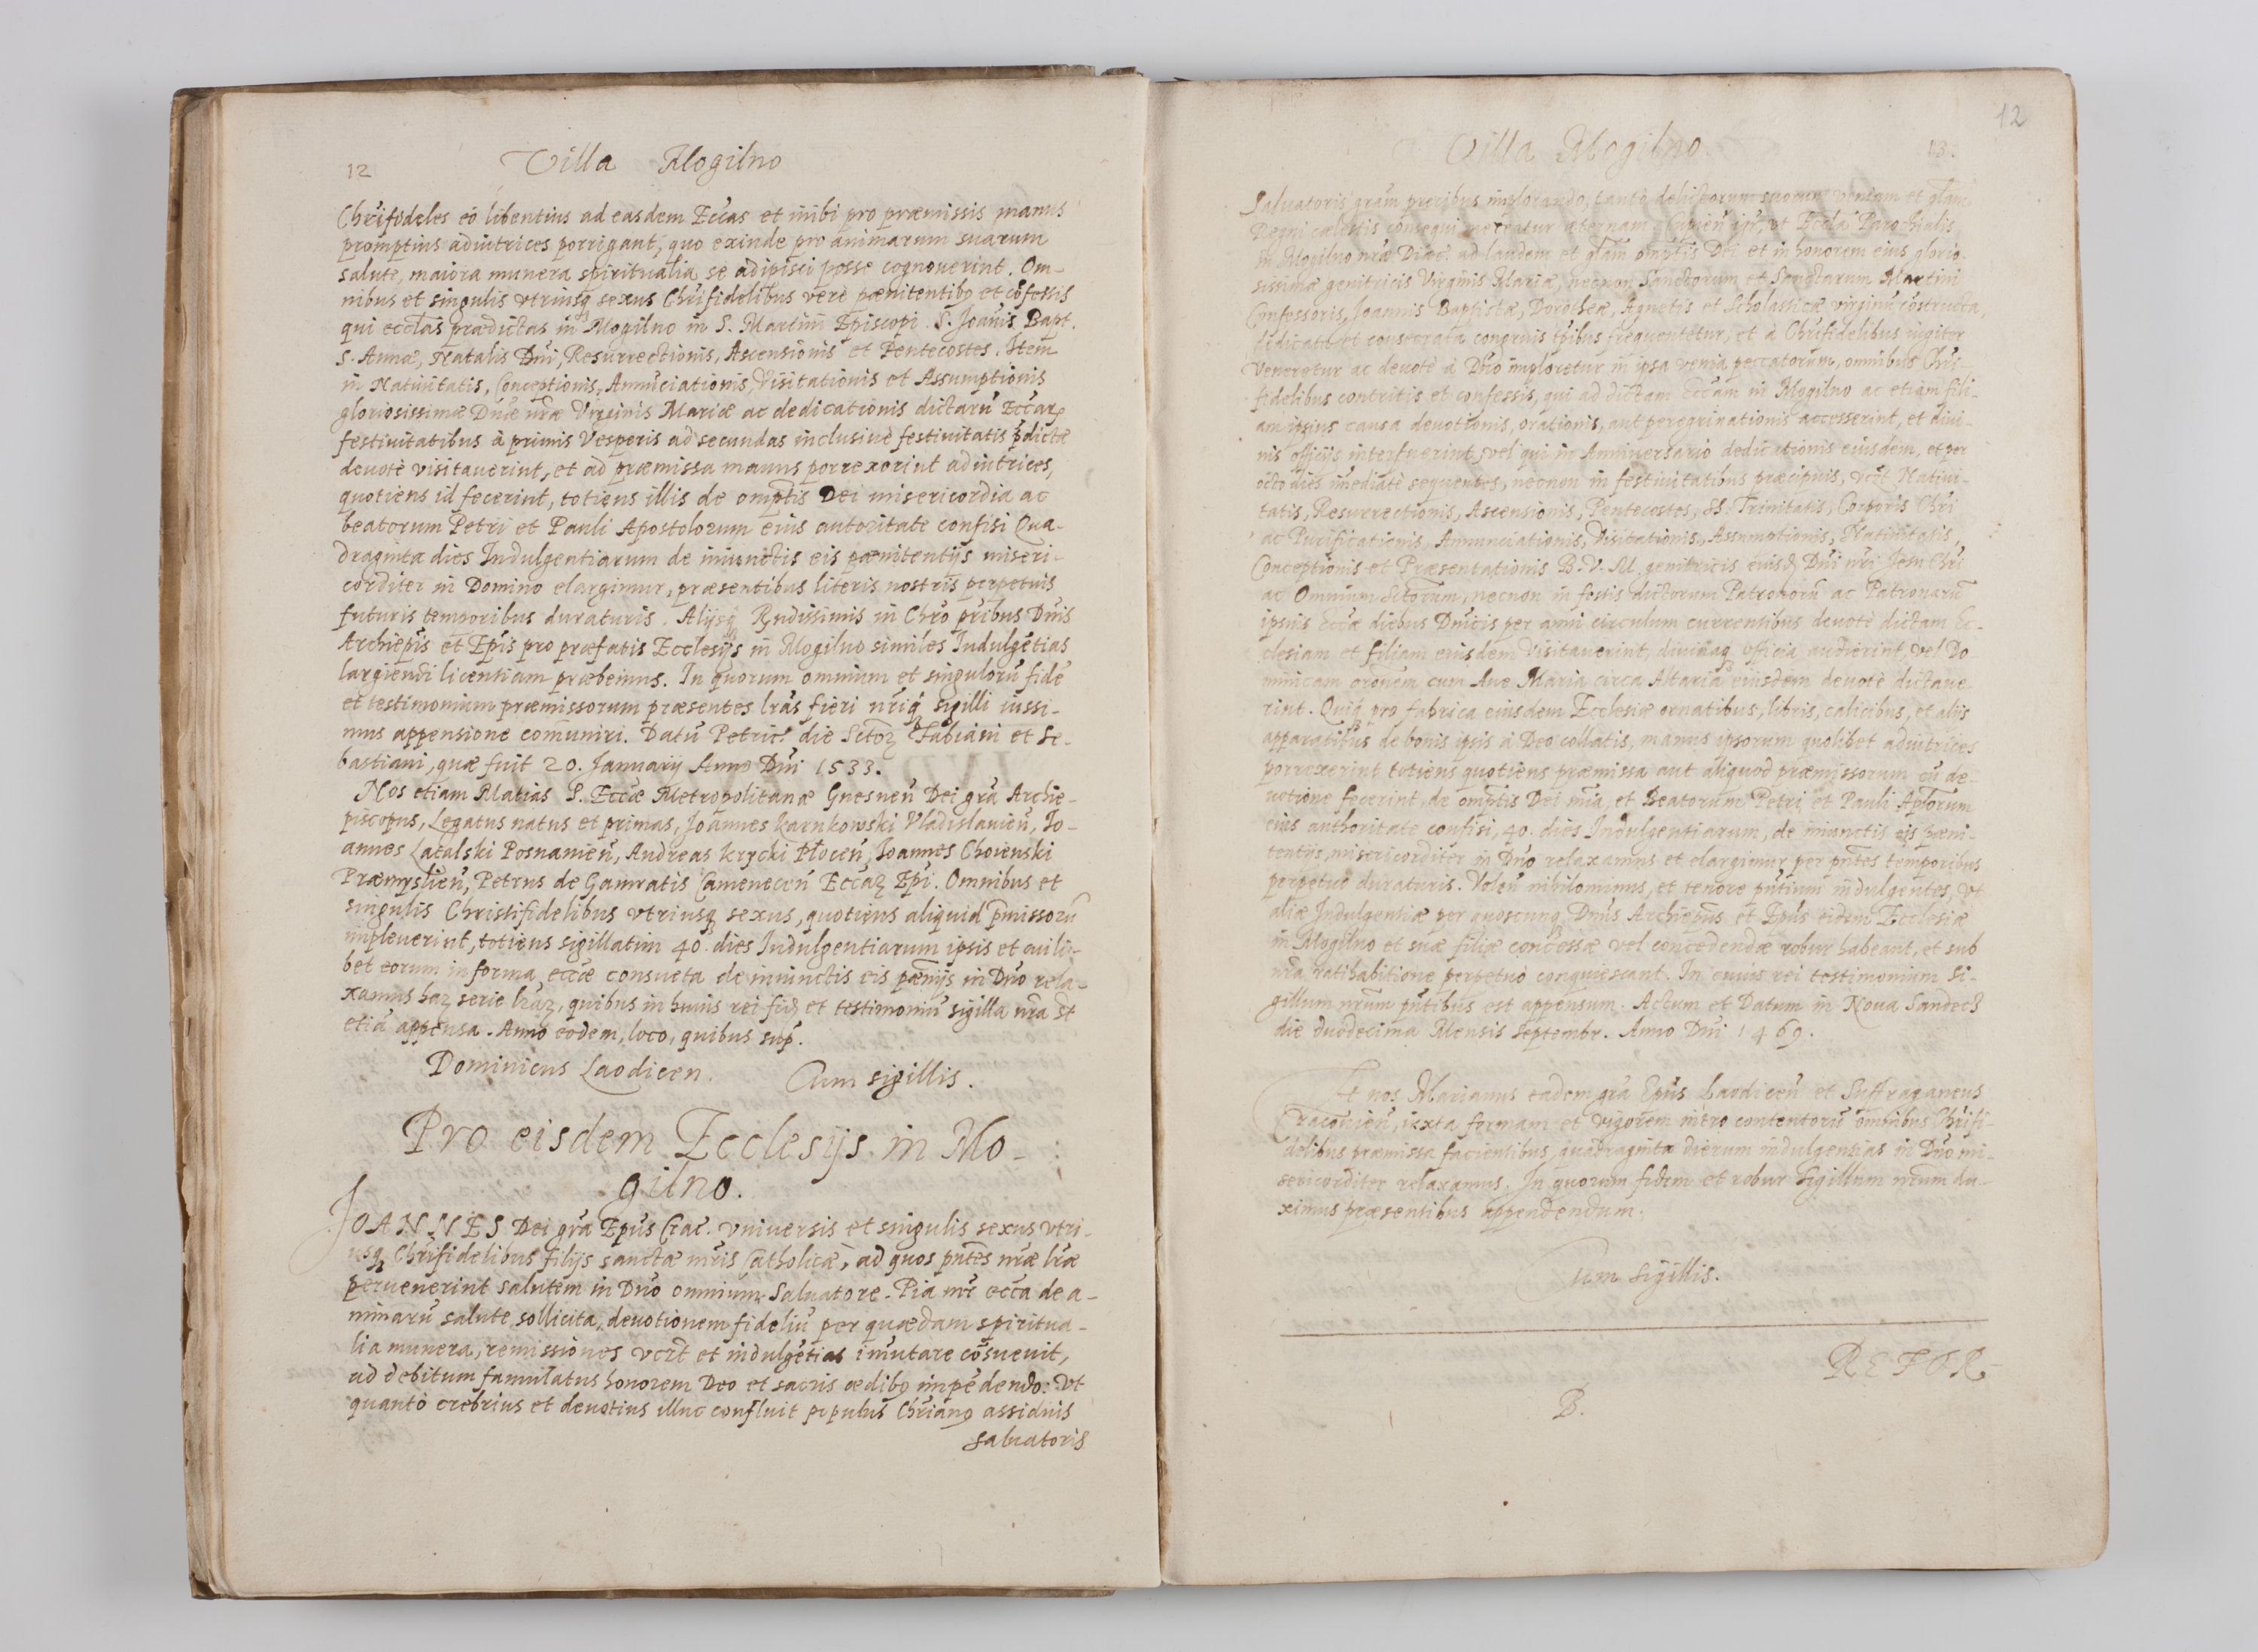 12
Villa Mogilno
Chrifideles eò libentius ad easdem Eccas et inibi pro præmissis manus
promptius adiutrices porrigant, quo exinde pro animarum suarum
salute, maiora munera spiritualia se adipisci posse cognouerint. Om-
nibus et singulis vtriusq sexus Chrifidelibus verè pænitentibq et cõfessis
qui ecclãs prædictas in Mogilno in S. Martini Episcopi S. Joãnis Bapt.
S. Annæ, Natalis Dni, Resurrectionis, Ascensionis et Pentecostes. Item
in Natiuitatis, Conceptionis, Annũciationis, Visitationis et Assumptionis
gloriosissimæ Dnæ nræ Virginis Mariæ ac dedicationis dictarũ Eccarȝ
festiuitatibus à primis Vesperis ad secundas inclusiuè festiuitatis p̃dictæ
deuotè visitauerint, et ad præmissa manus porrexerint adiutrices,
quotiens id fecerint, totiens illis de omptis Dei misericordia ac
beatorum Petri et Pauli Apostolorum eius autoritate confisi Qua-
draginta dies Indulgentiarum de iniunctis eis pænitentijs miseri-
corditer in Domino elargimur, præsentibus literis nostris perpetuis
futuris temporibus duraturis. Alijsq Rndissimis in Chro pribus Dnis
Archiepis et Epis pro præfatis Ecclesijs in Mogilno similes Indulgẽtias
largiendi licentiam præbemus. In quorum omnium et singulorũ fidẽ
et testimonium præmissorum præsentes lras fieri nriq sigilli iussi-
mus appensione com̃uniri. Datũ Petric. die Sctoȝ Fabiani et Se-
bastiani, quæ fuit 20. January Anno Dni 1533.
Nos etiam Matias S. Eccæ Metropolitanæ Gnesneñ Dei gra Archie-
piscopus, Legatus natus et primas, Joannes Karnkowski Vladislauieñ, Io-
annes Latalski Posnanieñ, Andreas Krycki Płoceñ, Ioannes Choienski
Præmyslieñ, Petrus de Gamratis Cameneceñ Eccaȝ Epi. Omnibus et
singulis Christifidelibus vtriusq sexus, quotiens aliquid p̃missorũ
impleuerint, totiens sigillatim 40. dies Indulgentiarum ipsis et cuili-
bet eorum in forma eccæ consueta de iniunctis eis pænijs in Dno rela-
xamus haȝ serie lraȝ, quibus in huius rei fidȝ et testimoniũ sigilla nra st
etiã appensa. Anno eodem, loco, quibus sup.
Dominicus Laodicen. Cum sigillis.
Pro eisdem Ecclesijs in Mo-
gilno.
JOANNES Dei gra Epus Crac. vniuersis et singulis sexus vtri-
usq Chrifidelibus filijs sanctæ mris Catholicæ, ad quos pntes nræ lræ
peruenerint salutem in Dno omnium Saluatore. Pia mr ecca de a-
nimarũ salute sollicita, deuotionem fideliũ per quædam spiritua-
lia munera, remissiones vczt et indulgẽtias im̃utare cõsueuit,
ad debitum famulatus honorem Deo et sacris ædibq impẽdendo: Vt
quantò crebrius et deuotius illuc confluit populus Chrianq assiduis
saluatoris
12
Villa Mogilno.
13.
Saluatoris gram precibus implorando, tantò delictorum suorum veniam et glam
Regni cælestis consequi mereatur æternam. Cupieñ igr, vt Eccla Parochialis
in Mogilno nræ Diæc. ad laudem et glam omptis Dei et in honorem eius glorio-
sissimæ genitricis Virginis Mariæ, necnon Sanctorum et Sanctarum Martini
Confessoris, Joannis Baptistæ, Dorotheæ, Agnetis et Scholasticæ virginũ cõstructa,
dedicata et consecrata congruis hribus frequentetur, et à Chrifidelibus iugiter
Veneretur ac deuotè à Dno imploretur in ipsa venia peccatorum, omnibus Chri-
fidelibus contritis et confessis, qui ad dictam Eccam in Mogilno ac etiam fili-
am ipsius causa deuotionis, orationis, aut peregrinationis accesserint, et diui-
nis officijs interfuerint, vel qui in Anniuersario dedicationis eiusdem, et per
octo dies im̃ediatè sequentes, necnon in festiuitatibus præcipuis, vczt Natiui-
tatis, Resurrectionis, Ascensionis, Pentecostes, SS. Trinitatis, Corporis Chri
ac Purificationis, Annunciationis, Visitationis, Assumptionis, Natiuitatis,
Conceptionis et Præsentationis B. V. M. genitricis eiusd Dni nri Jesu Chri
ac Omnium Sctorum, necnon in festis dictorum Patronorũ ac Patronarũ
ipsius Eccæ diebus Dnicis per anni circulum currentibus deuotè dictam Ec-
clesiam et filiam eiusdem visitauerint, diuinaq officia audierint, vel Do-
minicam oronem cum Aue Maria circa Altaria eiusdem deuotè dictaue-
rint. Quiq pro fabrica eiusdem Ecclesiæ ornatibus, libris, calicibus, et alijs
apparatibus de bonis ipsis à Deo collatis, manus ipsorum quolibet adiutrices
porrexerint totiens quotiens præmissa aut aliquod præmissorum cũ de-
uotione fecerint, de omptis Dei mia, et Beatorum Petri et Pauli Aplorum
eius authoritate confisi, 40. dies Indulgentiarum, de iniunctis eis pæni-
tentijs, misericorditer in Dno relaxamus et elargimur per pntes temporibus
perpetuò duraturis. Voleñ nihilominus, et tenore pntium indulgentes, vt
aliæ Indulgentiæ per quoscunq Dnos Archiepos et Epos eidem Ecclesiæ
in Mogilno et suæ filiæ concessæ vel concedendæ robur habeant, et sub
nra ratihabitione perpetuò conquiescant. In cuius rei testimonium Si-
gillum nrum pntibus est appensum. Actum et Datum in Noua Sandecz
die duodecima Mensis Septembr. Anno Dni 1469.
Et nos Marianus eadem gra Epus Laodiceñ et Suffraganeus
Cracouieñ, iuxta formam et vigorem intro contentorũ omnibus Chrifi-
delibus præmissa facientibus, quadraginta dierum indulgentias in Dno mi-
sericorditer relaxamus. In quorum fidem et robur Sigillum nrum du-
ximus præsentibus appendendum.
Cum sigillis.
REFOR-
B.